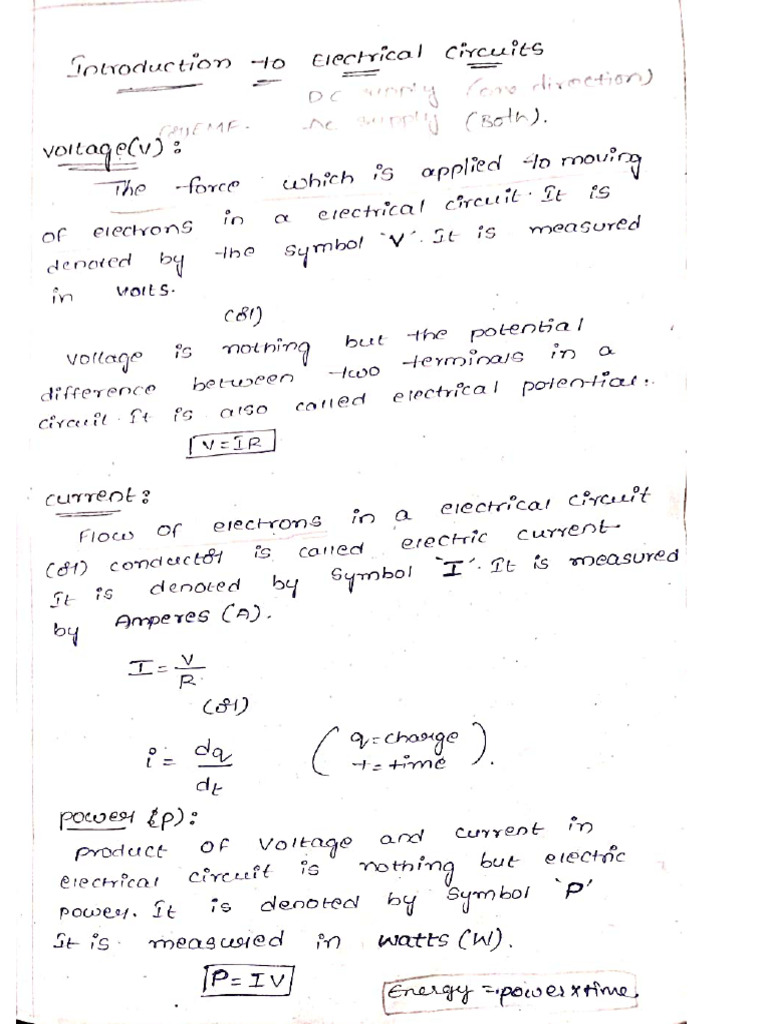 Introduction to Electrical Circuits
DC supply (one direction)
EMF. AC supply (Both).
voltage(v):
The force which is applied to moving
of electrons in a electrical circuit. It is
denoted by the symbol 'V'. It is measured
in volts.
(or)
voltage is nothing but the potential
difference between two terminals in a
circuit. It is also called electrical potential.
V=IR
current:
Flow of electrons in a electrical circuit
(or) conductor is called electric current
It is denoted by symbol 'I'. It is measured
by Amperes (A).
I = V/R
(or)
i = dq/dt (q=charge
t=time).
power (p):
product of voltage and current in
electrical circuit is nothing but electric
power. It is denoted by symbol 'P'
It is measured in watts (W).
P=IV
Energy = power x time.